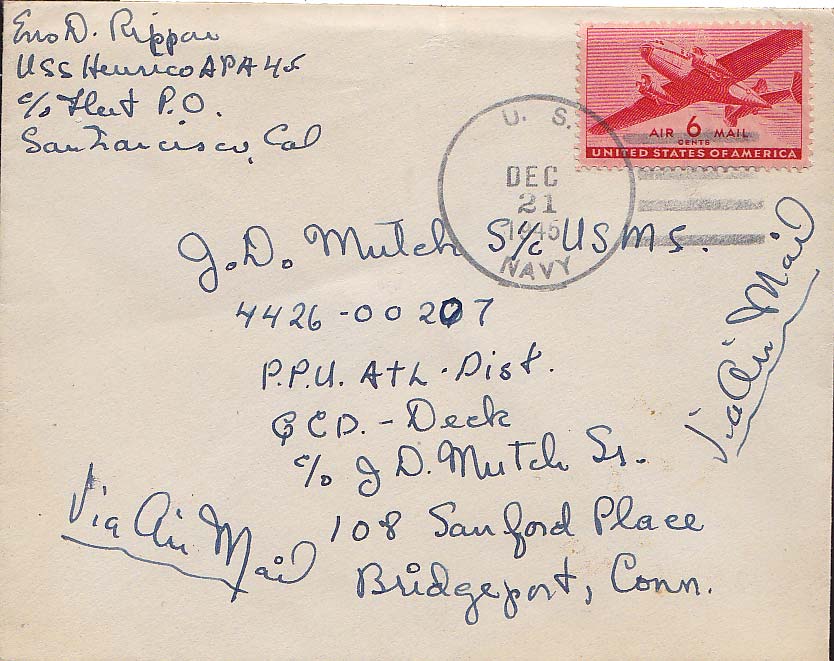 Ens D. Rippon
USS Henrico APA 45
c/o Fleet P.O.
San Francisco, Cal
AIR 6 MAIL
CENTS
UNITED STATES OF AMERICA
U. S.
DEC
21
1945
NAVY
J. D. Mutch S 1/c USMS.
4426-00207
P.P.U. Atl. Dist.
GCD. - Deck
c/o J D. Mutch Sr.
108 Sanford Place
Bridgeport, Conn.
Via Air Mail
Via Air Mail